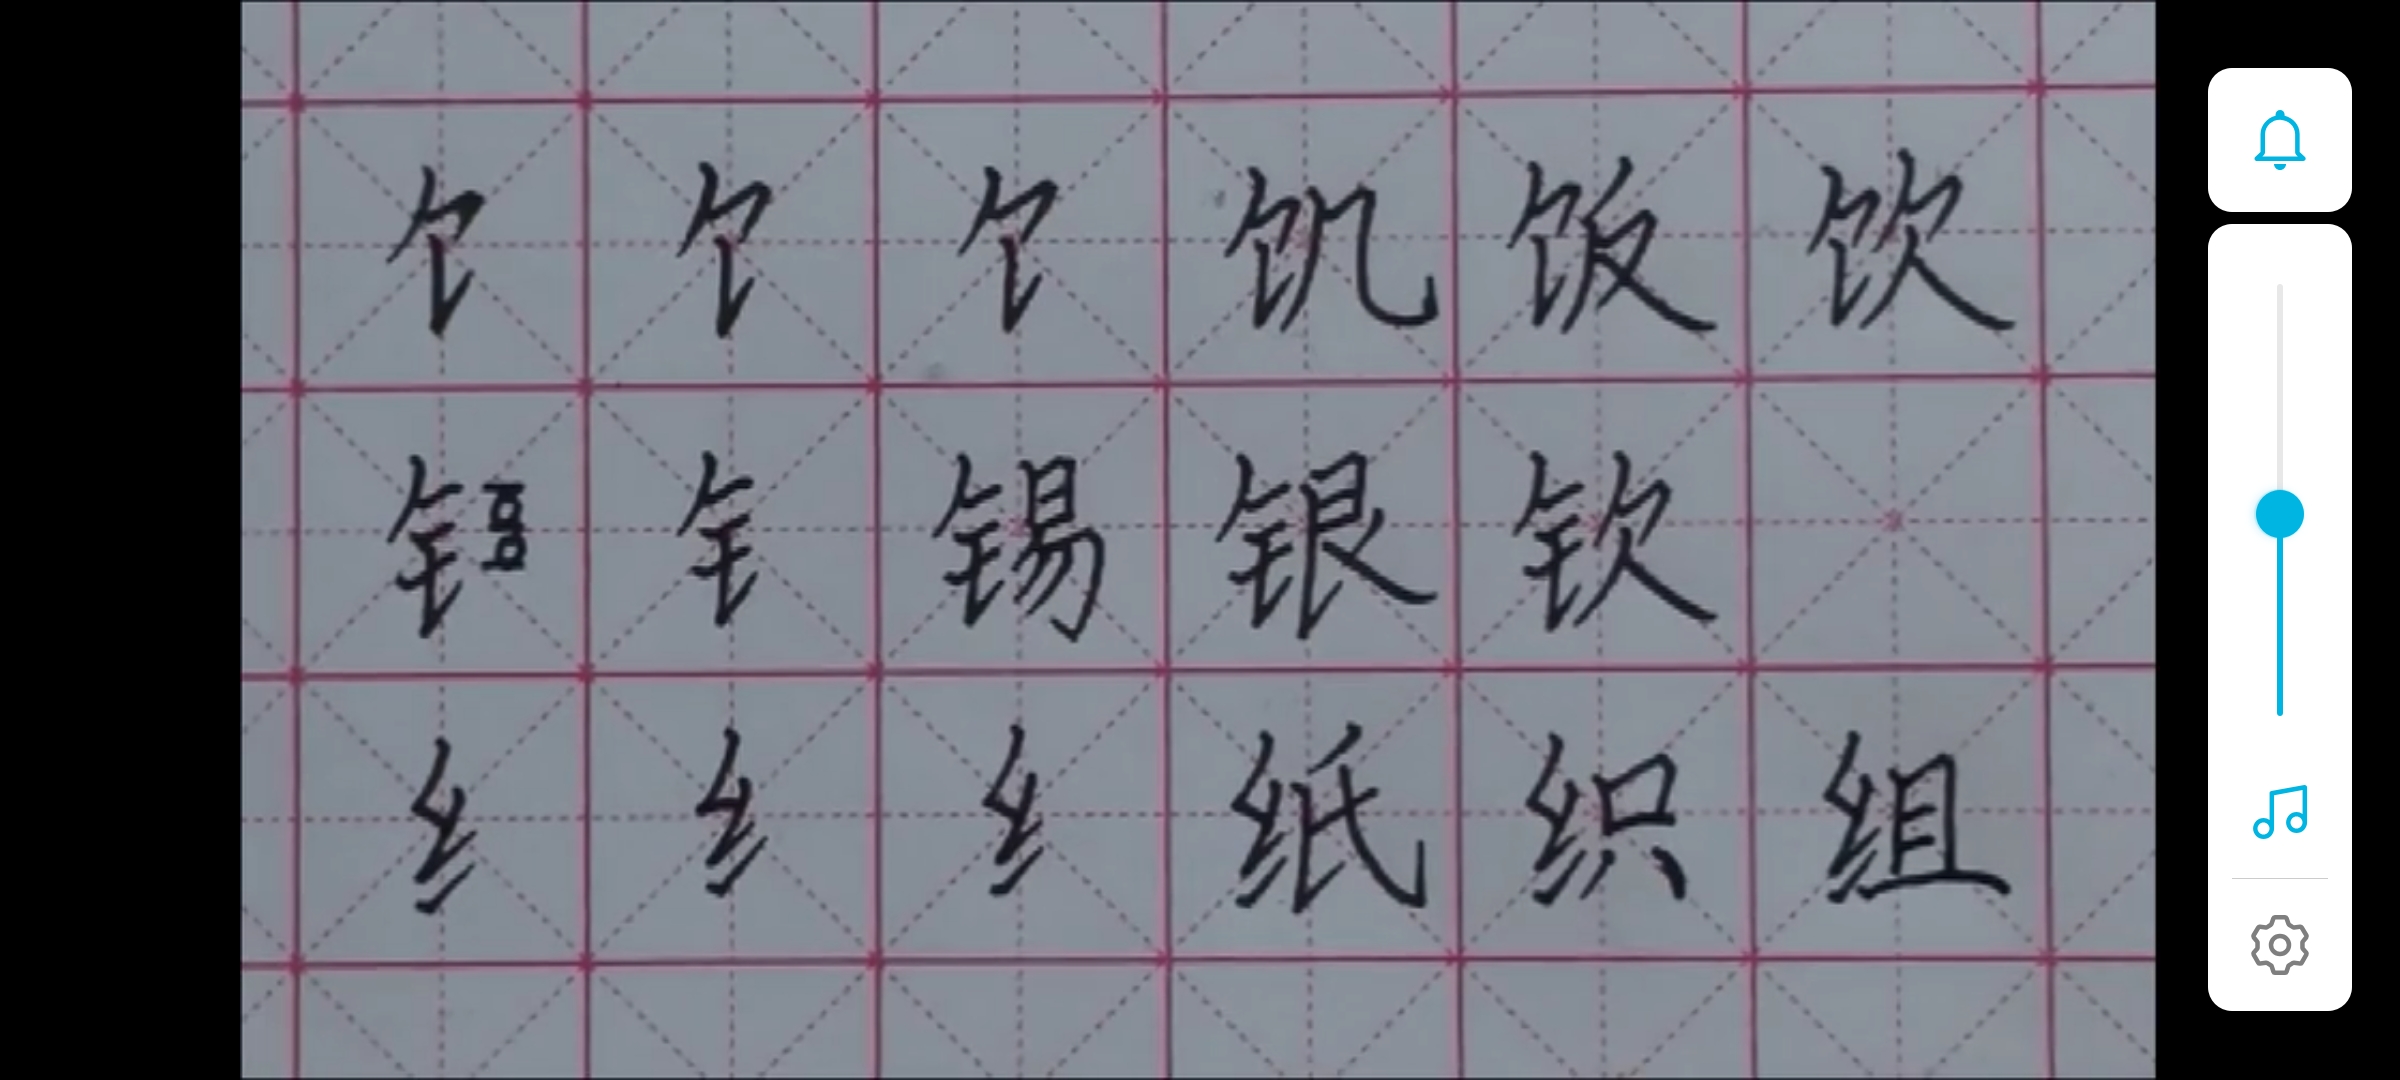 饣 饣 饣 饥 饭 饮
钅 钅 锡 银 钦
纟 纟 纟 纸 织 组